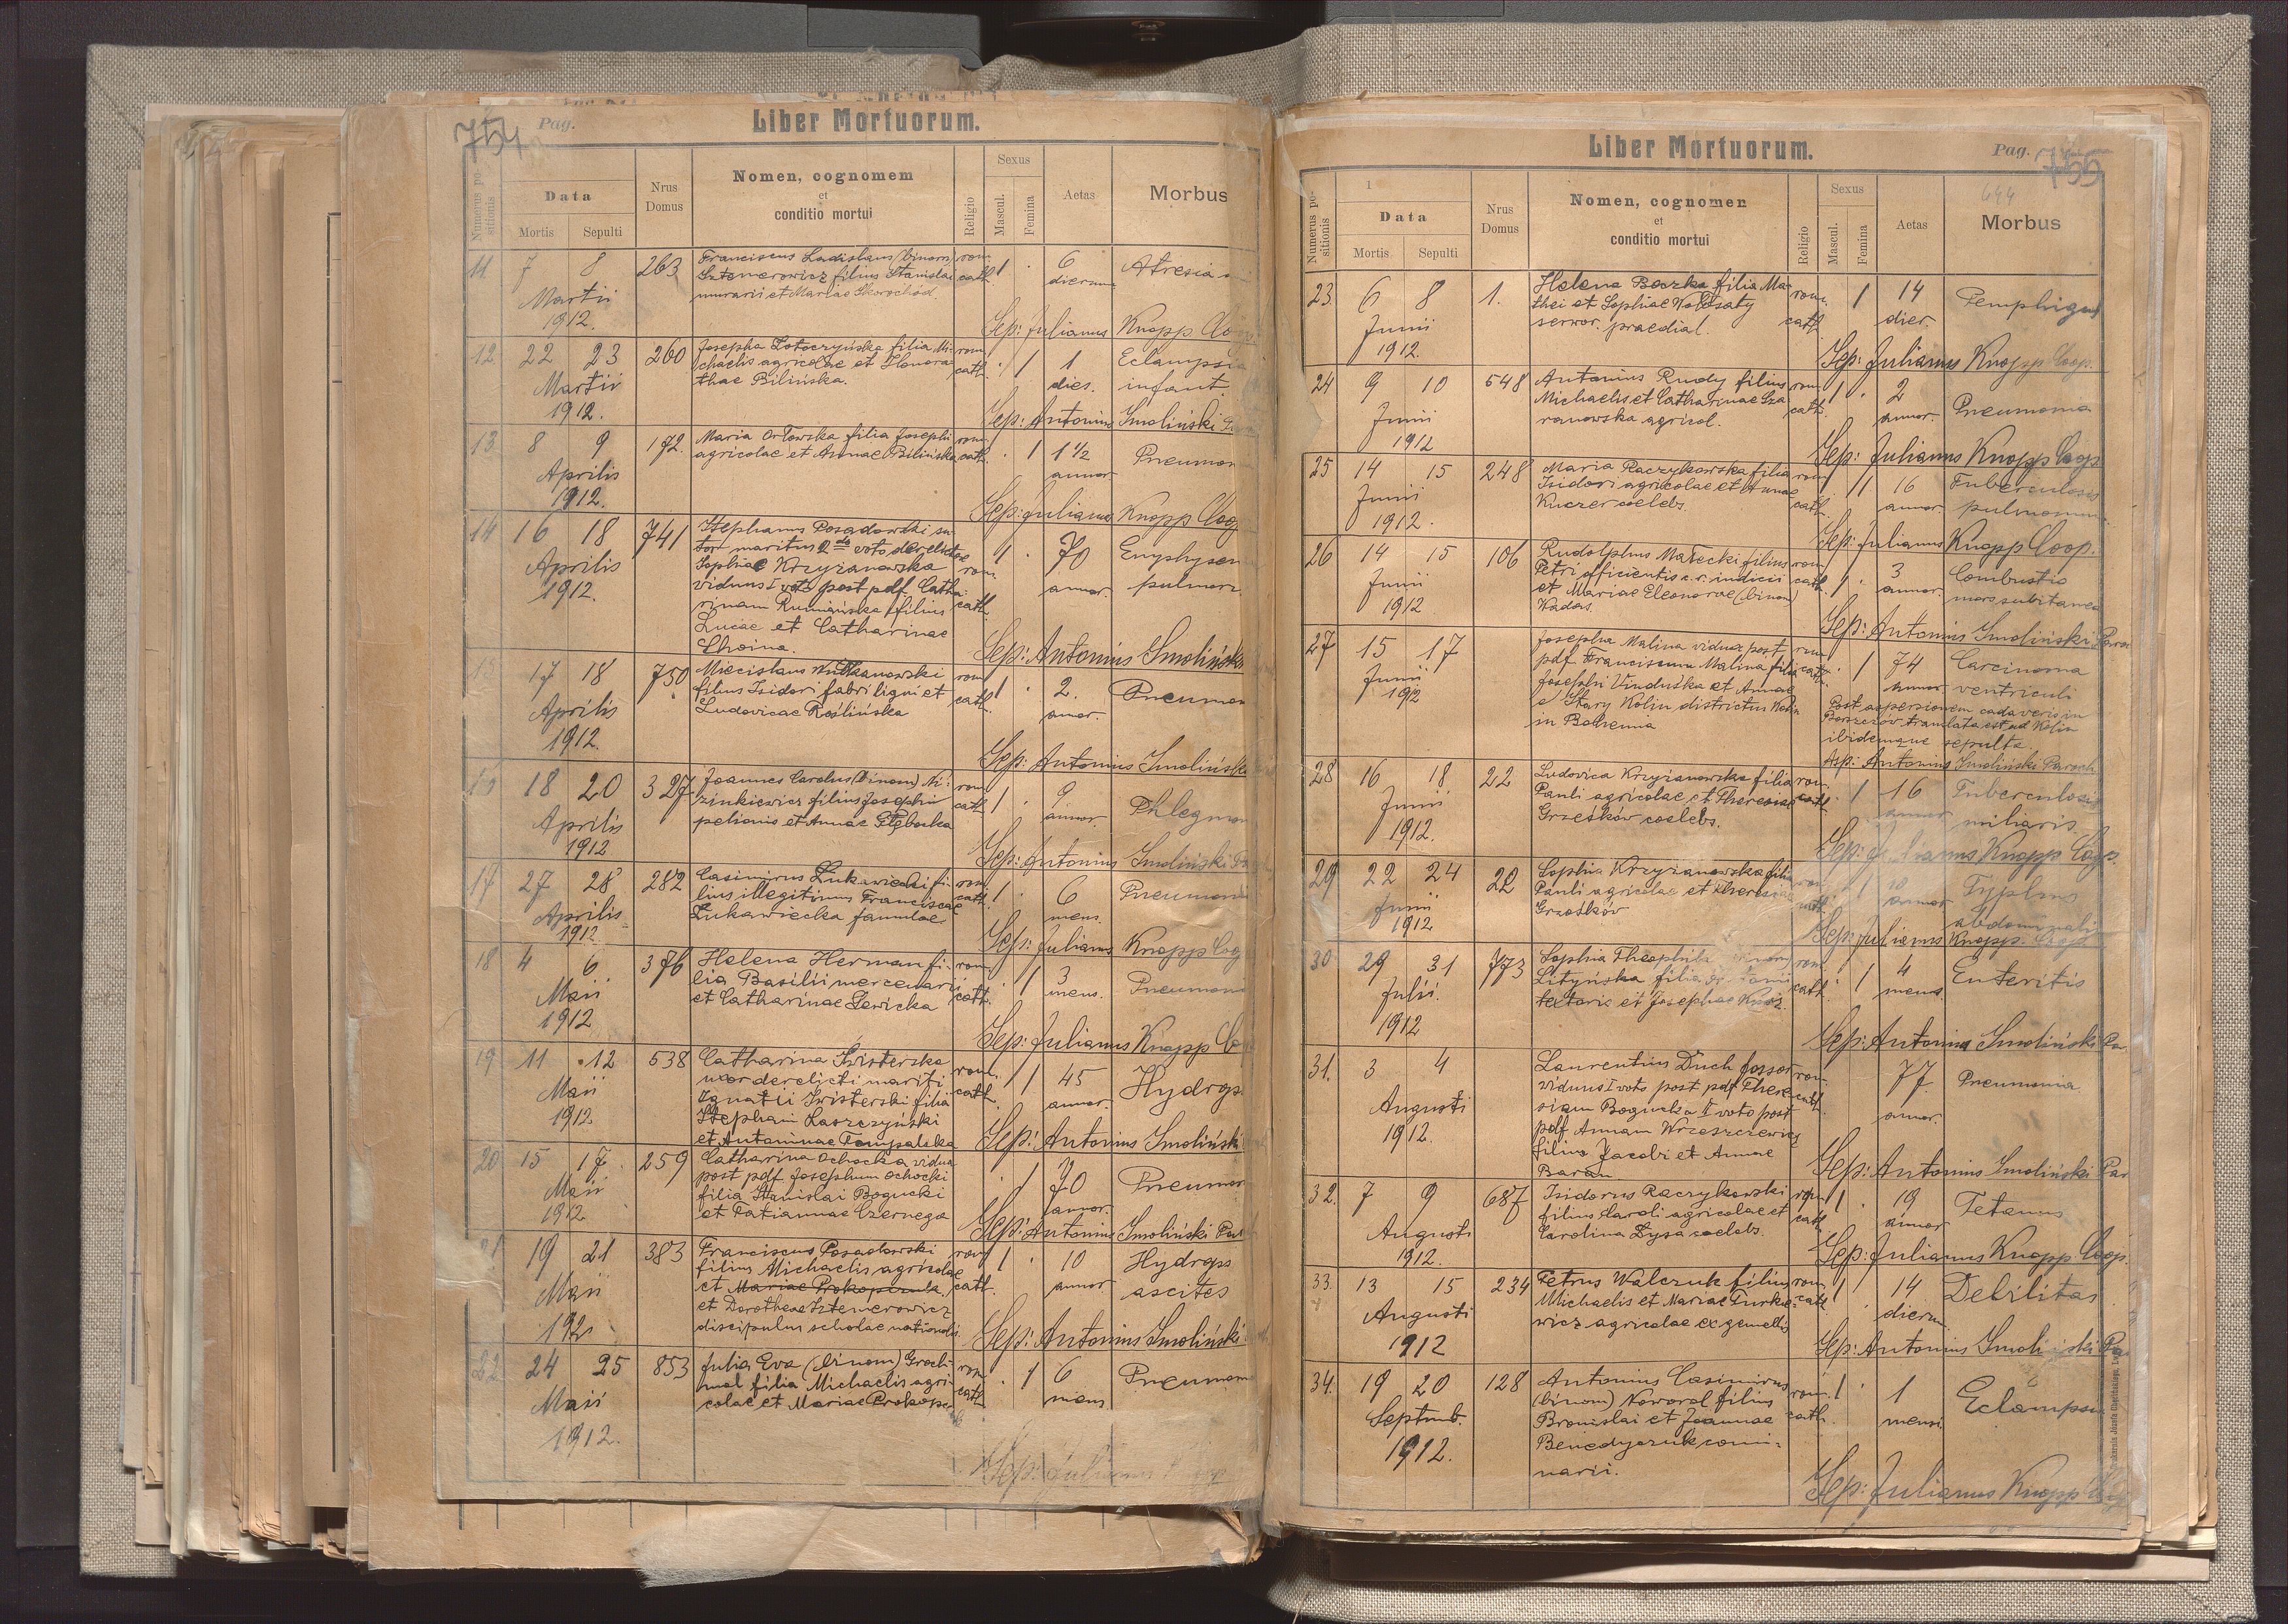 754 Pag.
Liber Mortuorum.
Numerus positionis
Data
Mortis Sepulti
Nrus Domus
Nomen, cognomem
et
conditio mortui
Religio
Sexus
Mascul. Femina
Aetas
Morbus
11 7 8 263 Franciscus Ladislaus (binom) rom. 1 6 Atresia
Martii Sztemerowicz filius Stanislai cath. dierum
1912. murarii et Mariae Skorochód.
Sep: Julianus Knopp Coo
12 22 23 260 Josepha Zotoczyńska filia Mi- rom. 1 1 Eclampsia
Martii chaelis agricolae et Honora- cath. dies. infant.
1912. thae Bilińska.
Sep: Antonius Smoliński
13 8 9 172. Maria Orłowska filia Josephi rom. 1 1 1/2 Pneumon
Aprilis agricolae et Annae Bilińska cath. annor.
1912.
Sep: Julianus Knopp Coo
14 16 18 741 Stephanus Posadowski su- 1 70 Emphysem
Aprilis tor maritus 2do voto derelictae annor. pulmon
1912. Sophiae Krzyżanowska rom.
viduus I voto post pdf Catha- cath.
rinam Rumińska filius
Lucae et Catharinae
Choina.
Sep: Antonius Smoliński
15 17 18 750 Miecislaus rom. 1 2. Pneumon
Aprilis filius Isidori fabri ligni et cath. annor.
1912. Ludovicae Roślińska
Sep: Antonius Smoliński
16 18 20 327 Joannes Carolus (binom) Ni- rom. 1 9 Phlegmon
Aprilis zinkiewicz filius Josephi cath. annor.
1912 pelionis et Annae Głęboka
Sep: Antonius Smoliński
17 27 28 282 Casimirus Łukawiecki fi- rom. 1 6 Pneumoni
Aprilis lius illegitimus Franciscae cath. mens.
1912 Łukawiecka famulae
Sep: Julianus Knopp Coo
18 4 6 376 Helena Herman fi- rom. 1 3 Pneumoni
Maii lia Basilii mercenarii cath. mens.
1912 et Catharinae Lewicka
Sep: Julianus Knopp Co
19 11 12 538 Catharina Świsterska rom. 1 45 Hydrops
Maii uxor derelicti mariti cath. annor.
1912 Ignatii Świsterski filia
Stephani Laszczyński
et Antoninae Tempalska
Sep: Antonius Smoliński
20 15 17 259 Catharina Ochocka vidua 1 70 Pneumon
Maii post pdf Josephum Ochocki annor.
1912 filia Stanislai Bogucki
et Tatiannae Czernega
Sep: Antonius Smoliński Par
21 19 21 383 Franciscus Posadowski rom. 1 10 Hydrops
Maii filius Michaelis agricolae cath. annor ascites
et Mariae Prokopczuk
et Dorotheae Sztemerowicz
191 discipulus scholae nationalis
Sep: Antonius Smoliński
22 24 25 853 Julia Eva (binom) Groch- rom. 1 6 Pneumoni
Maii mal filia Michaelis agri- cath. mens.
1912. colae et Mariae Prokop
Sep: Julianus Knopp
Liber Mortuorum.
Pag. 755
644
Numerus positionis
Data
Mortis Sepulti
Nrus Domus
Nomen, cognomen
et
conditio mortui
Religio
Sexus
Mascul. Femina
Aetas
Morbus
23. 6 8 1. Helena Boczka filia Ma- rom. 1 14 Pemphigus
Junii thei et Sophiae Wołosaty cath. dier.
1912. servor. praedial.
Sep: Julianus Knopp Coop.
24 9 10 548 Antonius Rudy filius rom. 1 2 Pneumonia
Junii Michaelis et Catharinae Sza- cath. annor.
1912 ranowska agricol.
Sep: Julianus Knopp Coop
25 14 15 248 Maria Raczykowska filia rom. 1 16 Tuberculosis
Junii Isidori agricolae et Annae cath. annor. pulmonum
1912. Kuczer coelebs.
Sep: Julianus Knopp Coop.
26 14 15 106 Rudolphus Małecki filius rom. 1 3 Combustio
Junii Petri officientis c. r. iudicii cath. annor. mors subitanea
1912 et Mariae Eleonorae (binom)
Kadas.
Sep: Antonius Smoliński Paro
27 15 17 Josepha Malina vidua post rom. 1 74 Carcinoma
Junii pdf Franciscum Malina filia cath. annor. ventriculi
1912 Josephi Vinduška et Annae
e Stary Kolin districtus Kolin
in Bohemia
Post aspersionem cadaveris in
Borszczów translata est ad Kolin
ibidemque sepulta.
Asp: Antonius Smoliński Paroch
28 16 18 22 Ludovica Krzyżanowska filia rom. 1 16 Tuberculosis
Junii Pauli agricolae et Theresiae cath. annor miliaris.
1912. Grześków coelebs.
Sep: Julianus Knopp Coop.
29 22 24 22 Sophia Krzyżanowska filia rom. 1 10 Typhus
Junii Pauli agricolae et Theresiae cath. annor abdominalis
1912 Grześków
Sep: Julianus Knopp. Coop
30 29 31 773 Sophia Theophila rom. 1 4 Enteritis
Julii. Lityńska filia cath. mens.
1912 textoris et Josephae
Sep: Antonius Smoliński Pa
31. 3 4 Laurentius Duch fossor rom. 77 Pneumonia
Augusti viduus I voto post pdf There- cath. annor.
1912. siam Bogucka II voto post
pdf Annam Wrzeszczewicz
filius Jacobi et Annae
Baran
Sep: Antonius Smoliński Par
32. 7 9 687 Isidorus Raczykowski rom. 1 19 Tetanus
Augusti filius Karoli agricolae et cath. annor
1912. Carolina Łysa coelebs.
Sep: Julianus Knopp Coop.
33. 13 15 234 Petrus Walczuk filius rom. 1 14 Debilitas
Augusti Michaelis et Mariae Turkie- cath. dierum
1912 wicz agricolae ex gemellis
Sep: Antonius Smoliński Pa
34. 19 20 128 Antonius Casimirus rom. 1 1 Eclampsia
Septemb. (binom) Noworol filius cath. mensi.
1912. Bronislai et Joannae
Benedyczuk comi-
narii.
Sep: Julianus Knopp